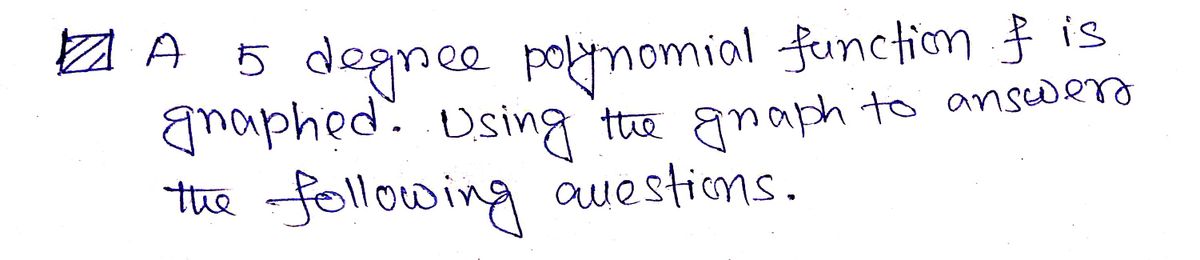 A 5 degree polynomial function f is
graphed. Using the graph to answer
the following questions.